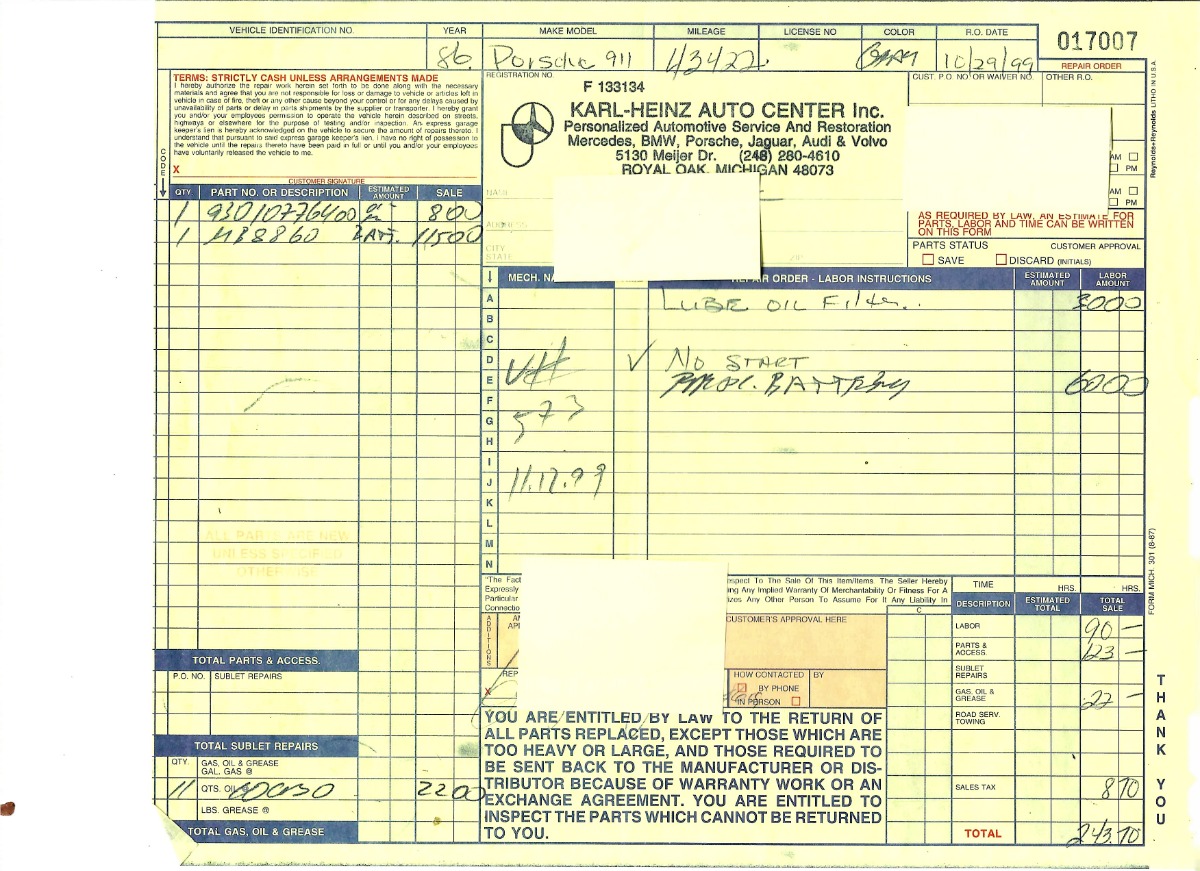 VEHICLE IDENTIFICATION NO. YEAR MAKE MODEL MILEAGE LICENSE NO COLOR R.O. DATE 017007
86 Porsche 911 43422 GRAY 10/29/99
REPAIR ORDER
TERMS: STRICTLY CASH UNLESS ARRANGEMENTS MADE
I hereby authorize the repair work herein set forth to be done along with the necessary
materials and agree that you are not responsible for loss or damage to vehicle or articles left in
vehicle in case of fire, theft or any other cause beyond your control or for any delays caused by
unavailability of parts or delay in parts shipments by the supplier or transporter. I hereby grant
you and/or your employees permission to operate the vehicle herein described on streets,
highways or elsewhere for the purpose of testing and/or inspection. An express garage
keeper's lien is hereby acknowledged on the vehicle to secure the amount of repairs thereto. I
understand that pursuant to said express garage keeper's lien, I have no right of possession to
the vehicle until the repairs thereto have been paid in full or until you and/or your employees
have voluntarily released the vehicle to me.
X
CUSTOMER SIGNATURE
CODE
REGISTRATION NO.
F 133134
KARL-HEINZ AUTO CENTER Inc.
Personalized Automotive Service And Restoration
Mercedes, BMW, Porsche, Jaguar, Audi & Volvo
5130 Meijer Dr. (248) 280-4610
ROYAL OAK, MICHIGAN 48073
NAME
ADDRESS
CITY
STATE
ZIP
CUST. P.O. NO. OR WAIVER NO. OTHER R.O.
AM
PM
AM
PM
AS REQUIRED BY LAW, AN ESTIMATE FOR
PARTS, LABOR AND TIME CAN BE WRITTEN
ON THIS FORM
PARTS STATUS CUSTOMER APPROVAL
SAVE DISCARD (INITIALS)
QTY. PART NO. OR DESCRIPTION ESTIMATED AMOUNT SALE
1 93010776400 800
1 MB8860 BATT. 11500
ALL PARTS ARE NEW
UNLESS SPECIFIED
OTHERWISE
TOTAL PARTS & ACCESS.
P.O. NO. SUBLET REPAIRS
TOTAL SUBLET REPAIRS
QTY. GAS, OIL & GREASE
GAL. GAS @
11 QTS. OIL 2200
LBS. GREASE @
TOTAL GAS, OIL & GREASE
MECH. REPAIR ORDER - LABOR INSTRUCTIONS ESTIMATED AMOUNT LABOR AMOUNT
A LUBE OIL Filter. 3000
B
C
D NO START
E BATTERY 6000
F
G 573
H
I
J 11.12.99
K
L
M
N
"The Fact
Expressly
Particular
Connection
espect To The Sale Of This Item/Items. The Seller Hereby
ng Any Implied Warranty Of Merchantability Or Fitness For A
izes Any Other Person To Assume For It Any Liability In
ADDITIONS
CUSTOMER'S APPROVAL HERE
C
X
HOW CONTACTED BY
BY PHONE
IN PERSON
YOU ARE ENTITLED BY LAW TO THE RETURN OF
ALL PARTS REPLACED, EXCEPT THOSE WHICH ARE
TOO HEAVY OR LARGE, AND THOSE REQUIRED TO
BE SENT BACK TO THE MANUFACTURER OR DIS-
TRIBUTOR BECAUSE OF WARRANTY WORK OR AN
EXCHANGE AGREEMENT. YOU ARE ENTITLED TO
INSPECT THE PARTS WHICH CANNOT BE RETURNED
TO YOU.
TIME HRS. HRS.
DESCRIPTION ESTIMATED TOTAL TOTAL SALE
LABOR 90 —
PARTS & ACCESS. 123 —
SUBLET REPAIRS
GAS, OIL & GREASE 22 —
ROAD SERV. TOWING
SALES TAX 8 70
TOTAL 243.70
Reynolds+Reynolds LITHO IN U.S.A.
FORM MICH. 301 (8-87)
THANK YOU